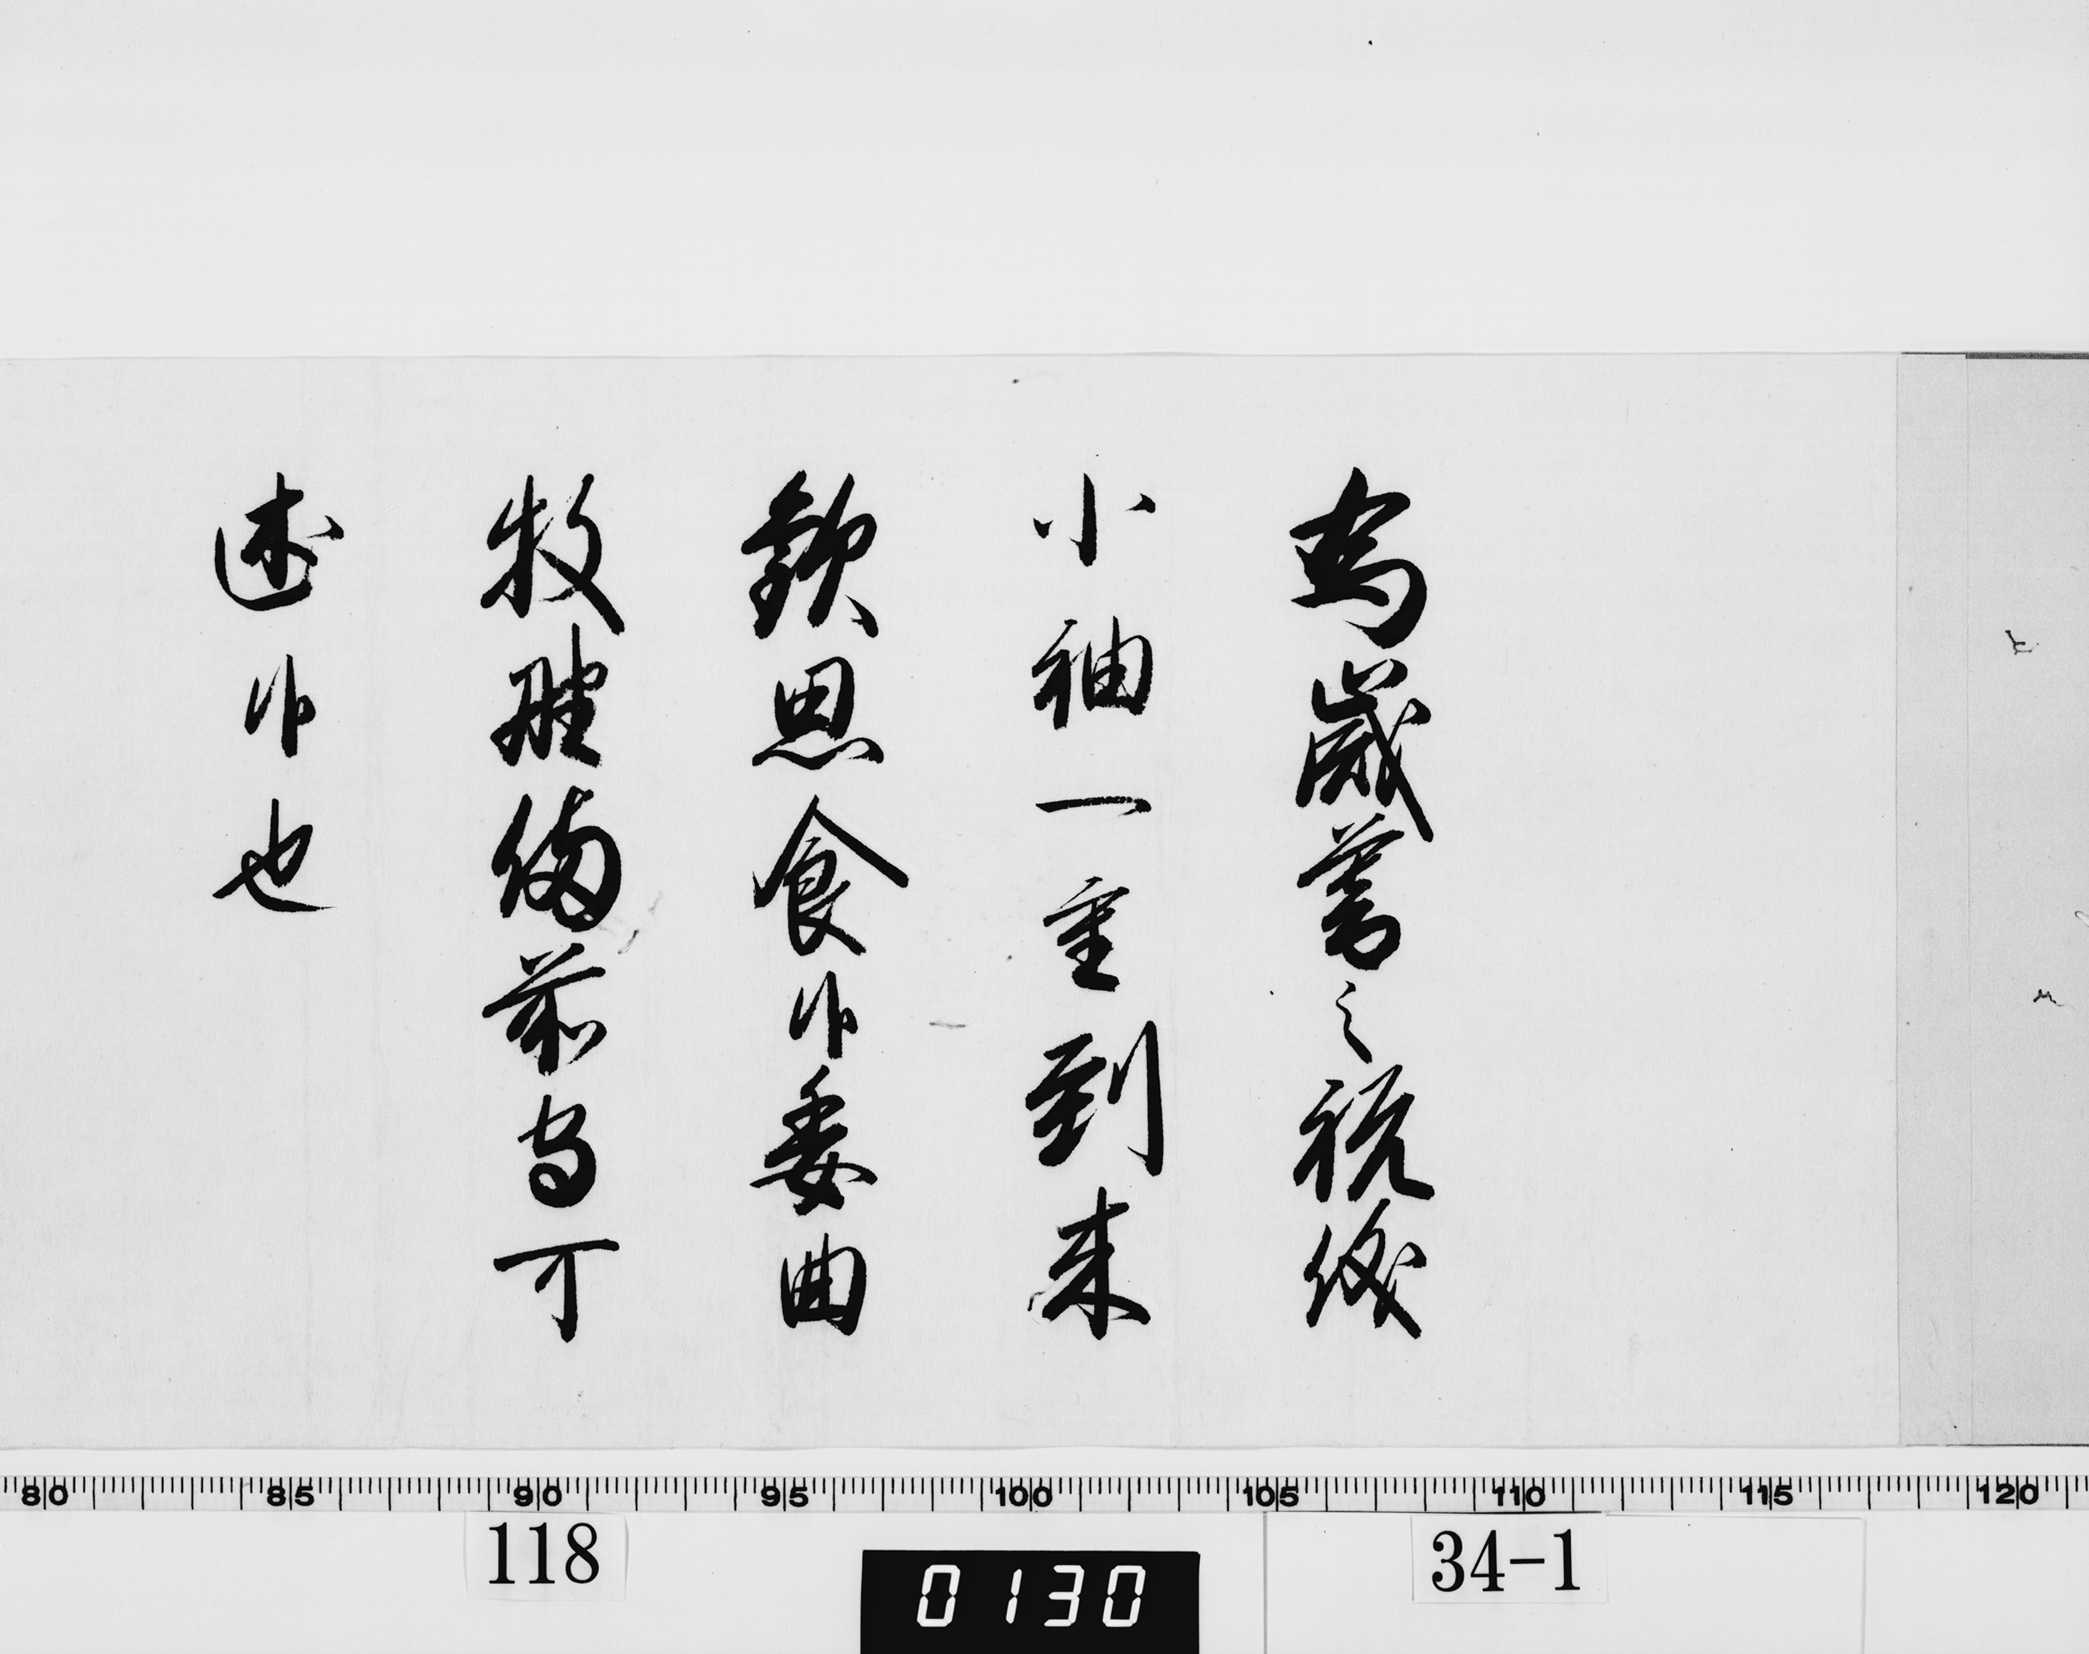 為歳暮之祝儀
小袖一重到来
歓思食候委曲
牧野備前守可
述候也
80 85 90 95 100 105 110 115 120
118
0130
34-1